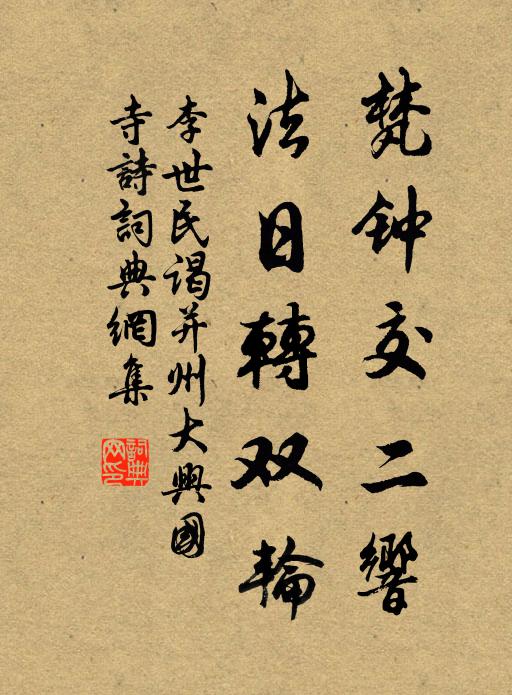 梵钟交二響
法日轉双輪
李世民謁并州大興國
寺詩詞典網集
詞典
网印